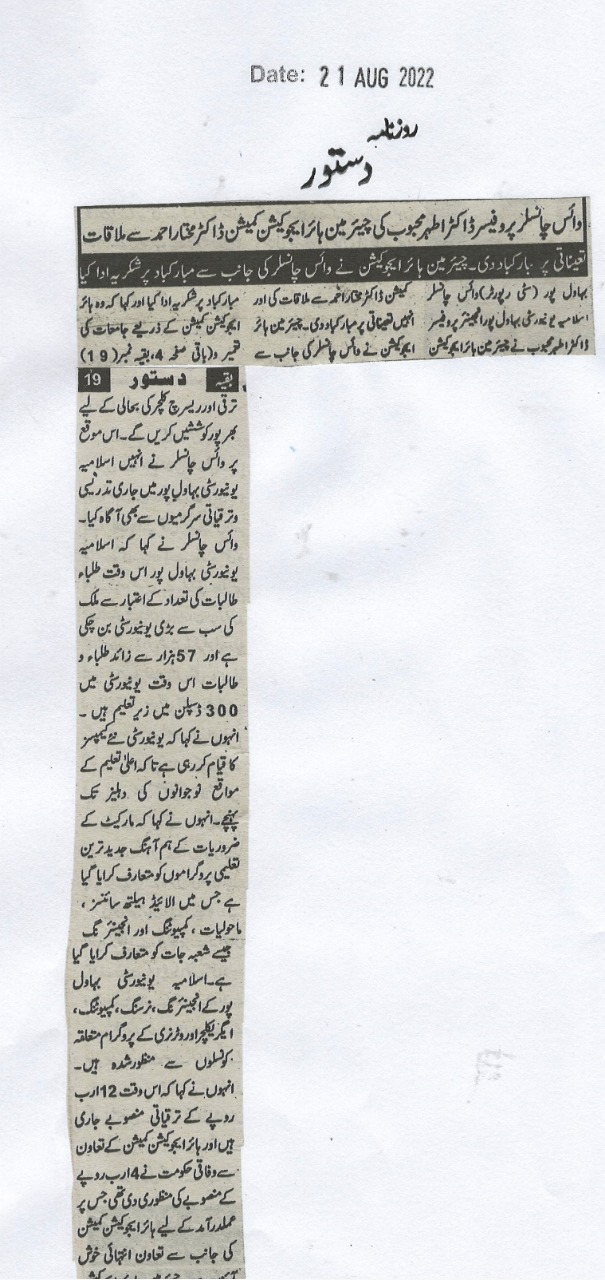 Date: 21 AUG 2022
روزنامہ
دستور
وائس چانسلر پروفیسر ڈاکٹر اطہر محبوب کی چیئرمین ہائر ایجوکیشن کمیشن ڈاکٹر مختار احمد سے ملاقات
تعیناتی پر مبارکباد دی۔ چیئرمین ہائر ایجوکیشن نے وائس چانسلر کی جانب سے مبارکباد پر شکریہ ادا کیا
بہاول پور (سٹی رپورٹر) وائس چانسلر
اسلامیہ یونیورسٹی بہاول پور انجینئر پروفیسر
ڈاکٹر اطہر محبوب نے چیئرمین ہائر ایجوکیشن
کمیشن ڈاکٹر مختار احمد سے ملاقات کی اور
انہیں تعیناتی پر مبارکباد دی۔ چیئرمین ہائر
ایجوکیشن نے وائس چانسلر کی جانب سے
مبارکباد پر شکریہ ادا کیا اور کہا کہ وہ ہائر
ایجوکیشن کمیشن کے ذریعے جامعات کی
تعمیر و (باقی صفحہ 4، بقیہ نمبر 19)
بقیہ دستور 19
ترقی اور ریسرچ کلچر کی بحالی کے لیے
بھرپور کوششیں کریں گے۔ اس موقع
پر وائس چانسلر نے انہیں اسلامیہ
یونیورسٹی بہاول پور میں جاری تدریسی
و ترقیاتی سرگرمیوں سے بھی آگاہ کیا۔
وائس چانسلر نے کہا کہ اسلامیہ
یونیورسٹی بہاول پور اس وقت طلباء
طالبات کی تعداد کے اعتبار سے ملک
کی سب سے بڑی یونیورسٹی بن چکی
ہے اور 57 ہزار سے زائد طلباء و
طالبات اس وقت یونیورسٹی میں
300 ڈسپلن میں زیر تعلیم ہیں۔
انہوں نے کہا کہ یونیورسٹی نئے کیمپسز
کا قیام کر رہی ہے تاکہ اعلیٰ تعلیم کے
مواقع نوجوانوں کی دہلیز تک
پہنچے۔ انہوں نے کہا کہ مارکیٹ کے
ضروریات کے ہم آہنگ جدید ترین
تعلیمی پروگراموں کو متعارف کرایا گیا
ہے جس میں الائیڈ ہیلتھ سائنسز،
ماحولیات، کمپیوٹنگ اور انجینئرنگ
جیسے شعبہ جات کو متعارف کرایا گیا
ہے۔ اسلامیہ یونیورسٹی بہاول
پور کے انجینئرنگ، نرسنگ، کمپیوٹنگ،
ایگریکلچر اور وٹرنری کے پروگرام متعلقہ
کونسلوں سے منظور شدہ ہیں۔
انہوں نے کہا کہ اس وقت 12 ارب
روپے کے ترقیاتی منصوبے جاری
ہیں اور ہائر ایجوکیشن کمیشن کے تعاون
سے وفاقی حکومت نے 4 ارب روپے
کے منصوبے کی منظوری دی تھی جس پر
عملدرآمد کے لیے ہائر ایجوکیشن کمیشن
کی جانب سے تعاون انتہائی خوش